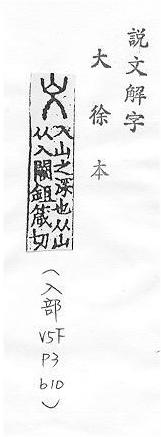 説文解字
大徐本
入山之深也从山
从入闕鉏箴切
(入部
V5F
P3
b10)